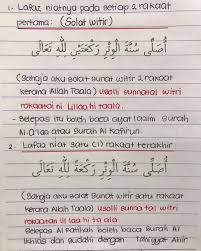 1. Lafaz niatnya pada setiap 2 rakaat
pertama: (Solat witir)
أُصَلِّى سُنَّةَ الْوِتْرِ رَكْعَتَيْنِ لِلّٰهِ تَعَالَى
(Sahaja aku solat sunat witir 2 rakaat
kerana Allah Taala) usolli sunnatal witri
rokaataini lillaahi taala.
- Selepas itu boleh baca ayat lazim surah
Al-A'laa atau surah Al Kafirun
2. Lafaz niat satu (1) rakaat terakhir
أُصَلِّى سُنَّةَ الْوِتْرِ رَكْعَةً لِلّٰهِ تَعَالَى
(Sahaja aku solat sunat witir satu rakaat
kerana Allah Taala) usolli sunnatal witri
rokaatan lillaahi ta ala
Selepas Al Fatihah boleh baca Surah Al
Ikhlas dan sudahi dengan tahiyyat Akhir